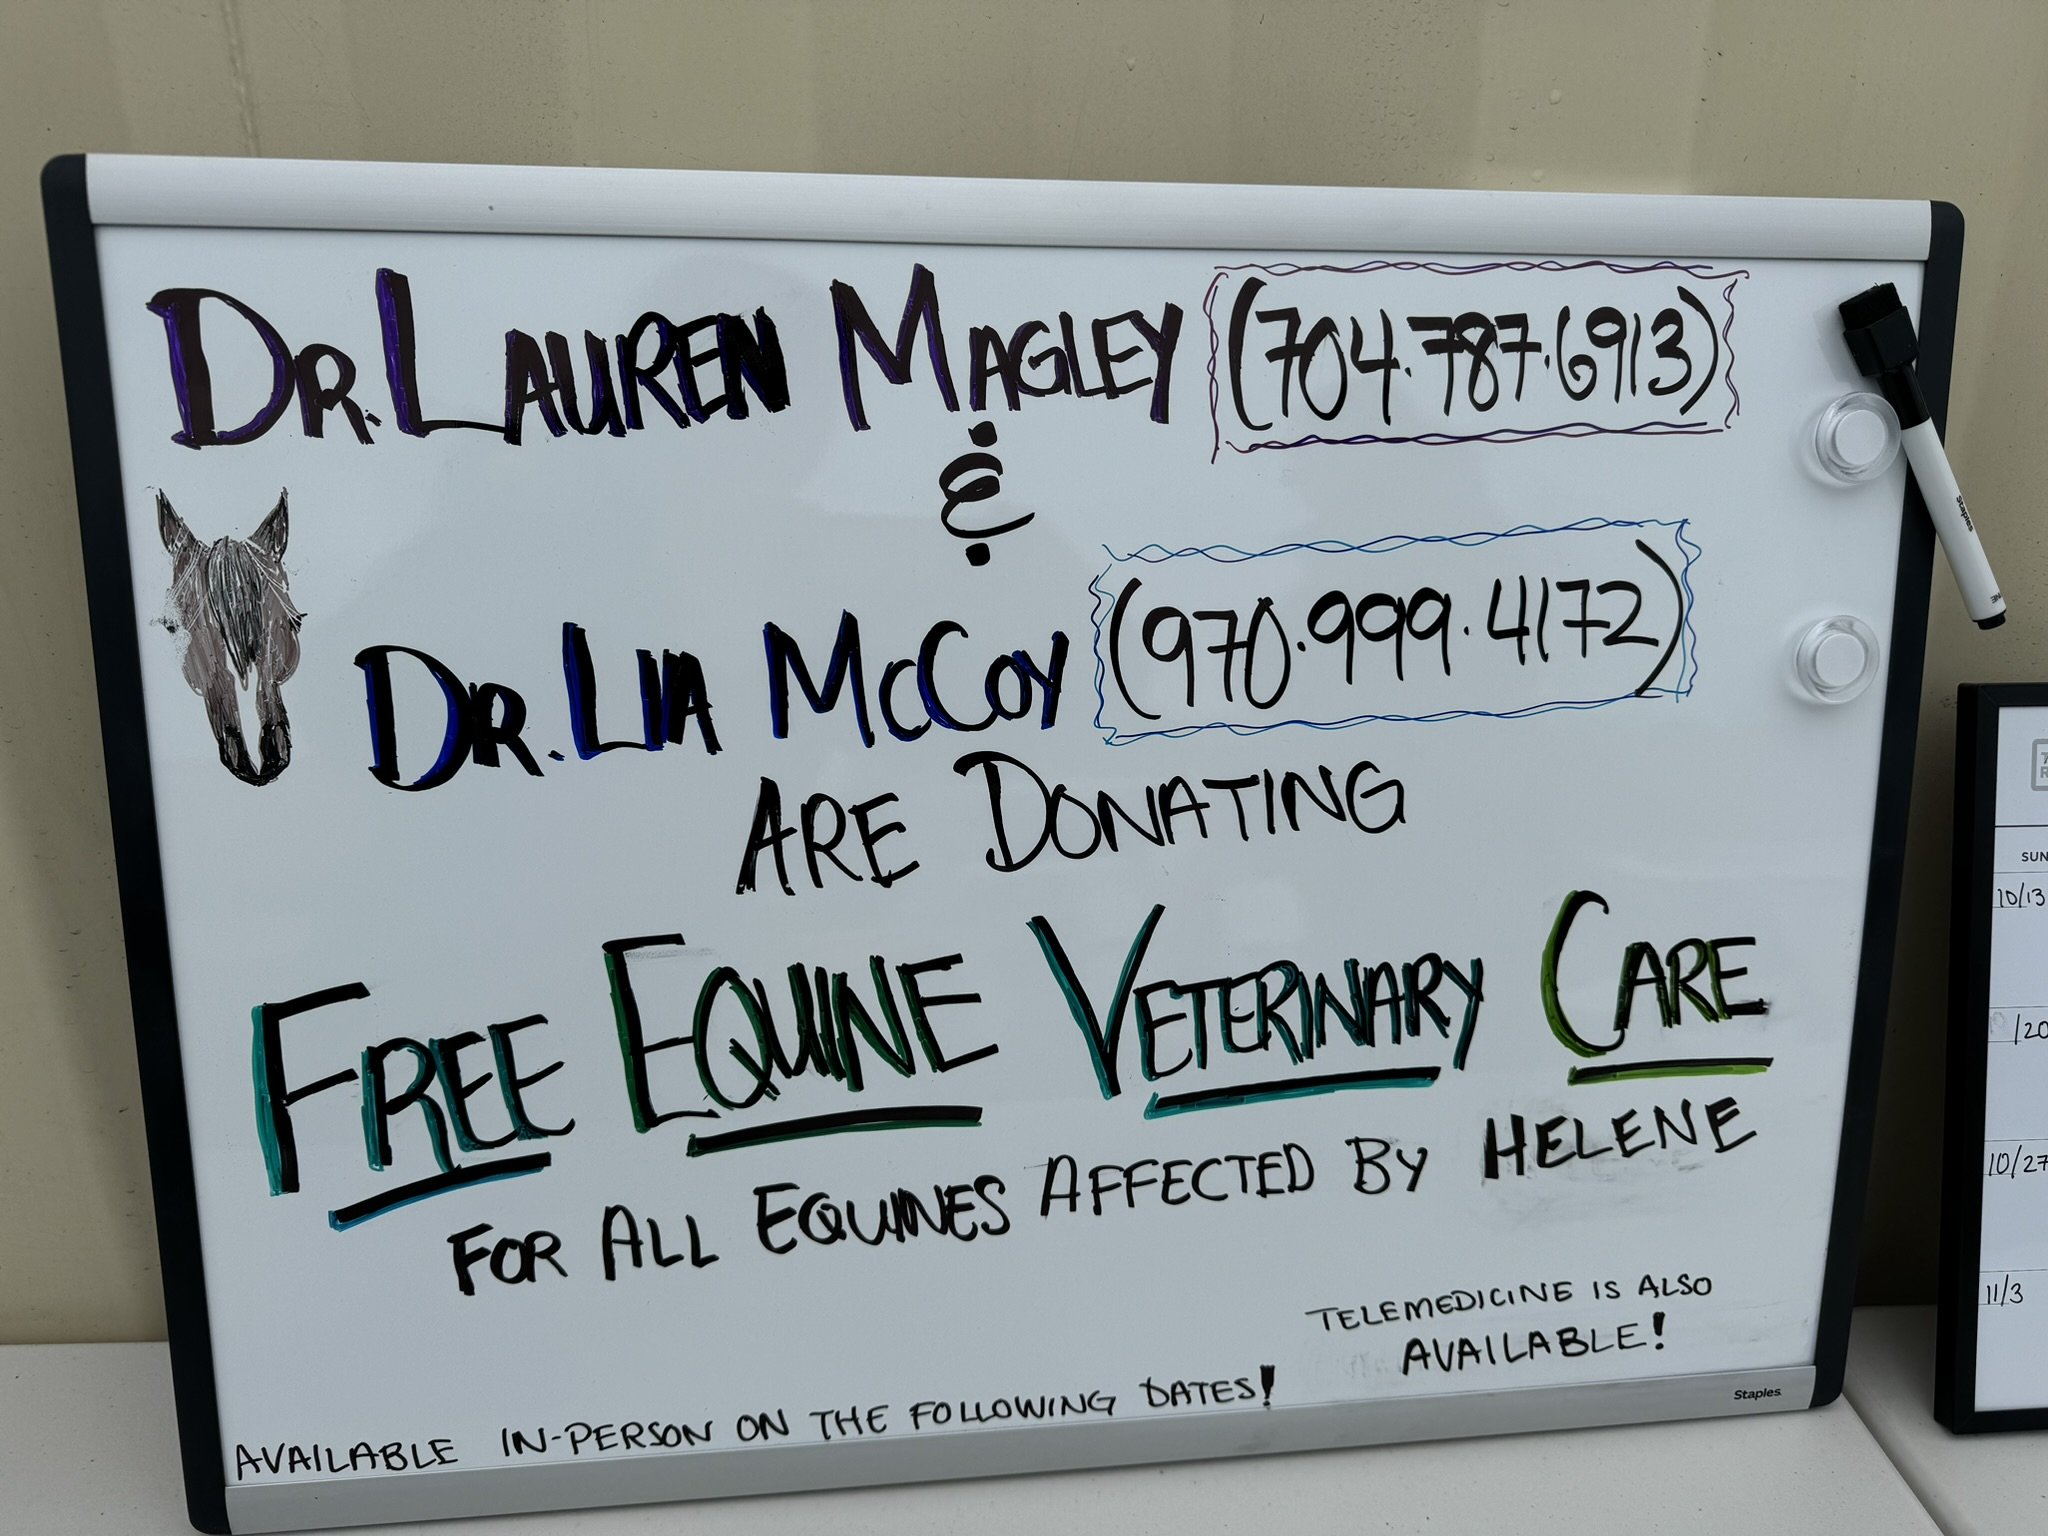 DR. LAUREN MAGLEY (704.787.6913)
&
DR. LIA MCCOY (970.999.4172)
ARE DONATING
FREE EQUINE VETERINARY CARE
FOR ALL EQUINES AFFECTED BY HELENE
TELEMEDICINE IS ALSO
AVAILABLE!
AVAILABLE IN-PERSON ON THE FOLLOWING DATES!
Staples
Staples
SUN
10/13
/20
10/27
11/3